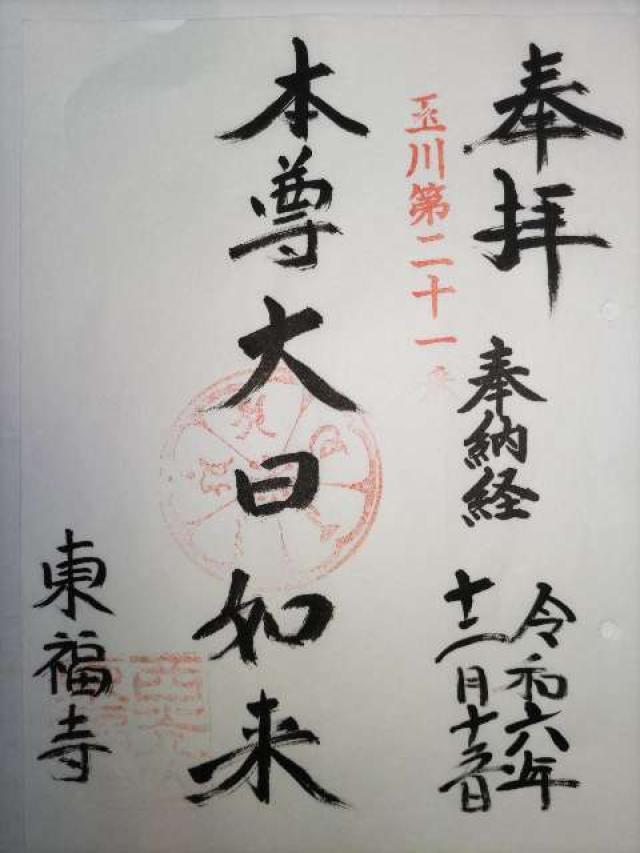 奉拝
奉納経
令和六年
十二月十五日
玉川第二十一番
本尊大日如来
東福寺